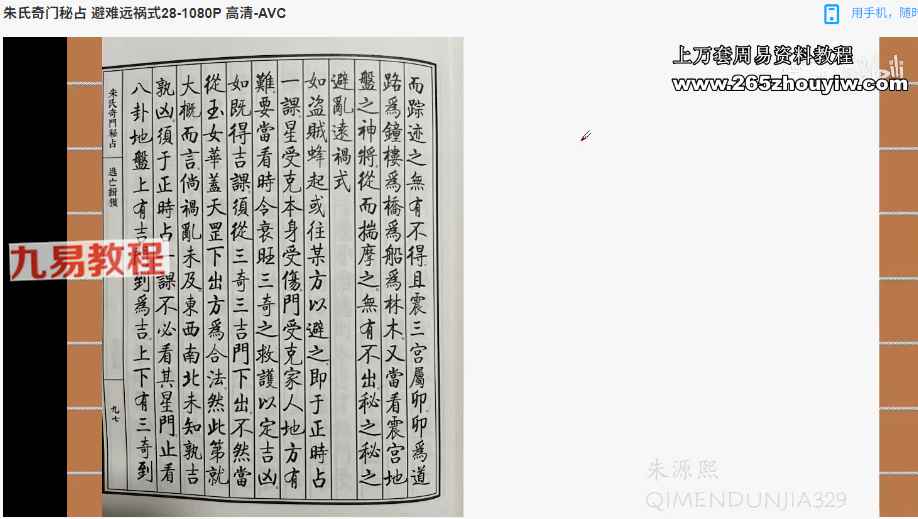 朱氏奇门秘占 避难远祸式28-1080P 高清-AVC
用手机，随时
上万套周易资料教程
www.265zhouyiw.com
而踪迹之無有不得且震三宫屬卯卯爲道
路爲鐘樓爲橋爲船爲林木又當看震宫地
盤之神將從而揣摩之無有不出秘之秘之
避亂遠禍式
如盗賊蜂起或往某方以避之即于正時占
一課星受克本身受傷門受克家人地方有
難要當看時令衰旺三奇之救護以定吉凶
如既得吉課須從三奇三吉門下出不然當
從玉女華蓋天罡下出方爲合法然此第就
大概而言倘禍亂未及東西南北未知孰吉
孰凶須于正時占一課不必看其星門止看
八卦地盤上有吉
到爲吉上下有三奇到
朱氏奇門秘占
逃亡捐獲
九七
九易教程
朱源熙
QIMENDUNJIA329